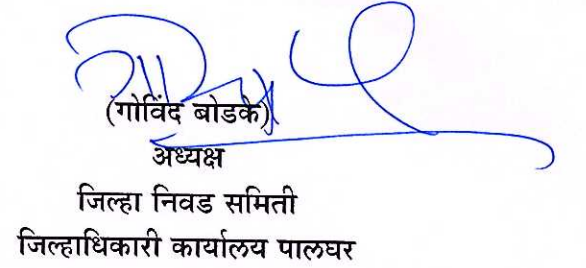 (गोविंद बोडके)
अध्यक्ष
जिल्हा निवड समिती
जिल्हाधिकारी कार्यालय पालघर